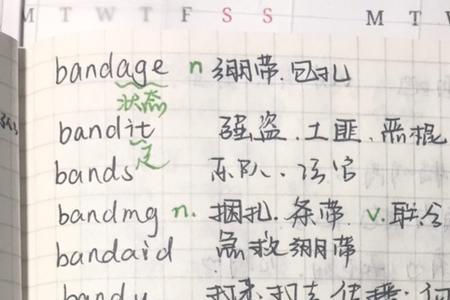 M T W T F S S M T W
bandage n 绷带.包扎
状态
bandit 强盗.土匪.恶棍
足
bands 乐队.
banding n. 捆扎.条带 v.联合
bandaid 急救绷带
bandy